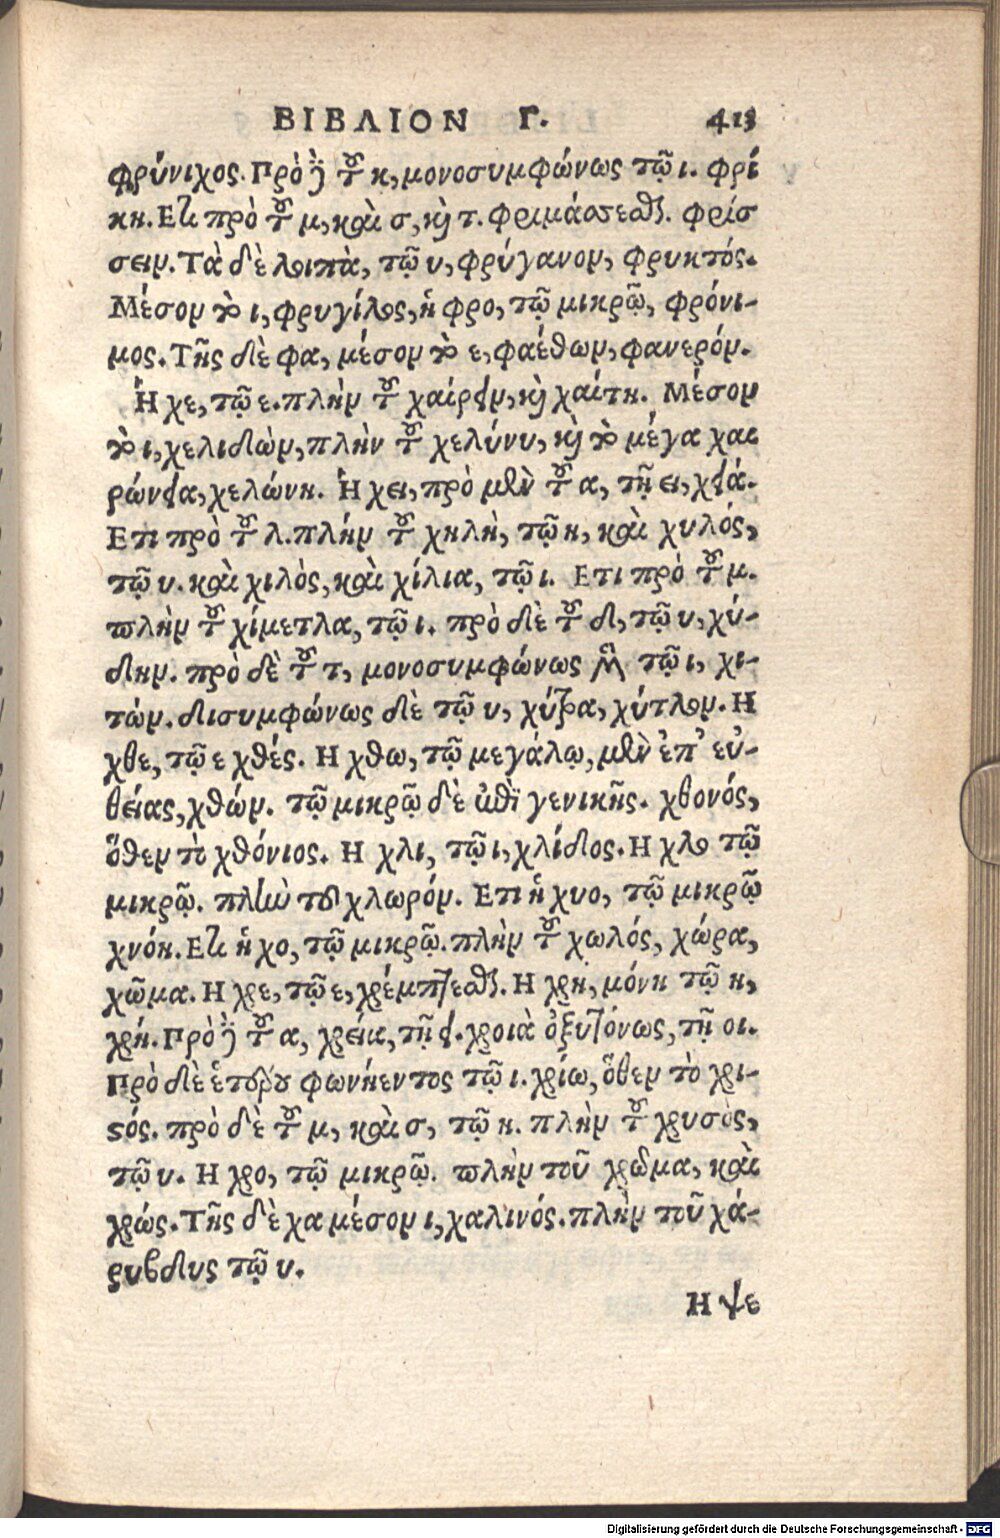 ΒΙΒΛΙΟΝ Γ. 413
φρύνιχος. Πρὸ ἢ τοῦ κ, μονοσυμφώνως τῷ ι. φρί
κη. Ετι πρὸ τοῦ μ, καὶ σ, καὶ τ. φριμάσσεσθαι. φρίσ
σειν. Τὰ δὲ λοιπὰ, τῷ υ, φρύγανον, φρυκτός.
Μέσον τὸ ι, φρυγίλος, ἡ φρο, τῷ μικρῷ, φρόνι-
μος. Τῆς δὲ φα, μέσον τὸ ε, φαέθων, φανερόν.
Ἡ χε, τῷ ε. πλὴν τοῦ χαίρειν, καὶ χαίτη. Μέσον
τὸ ι, χελιδὼν, πλὴν τοῦ χελύνυ, καὶ τὸ μέγα χαι
ρώνεια, χελώνη. Ἡ χει, πρὸ μὲν τοῦ α, τῇ ει, χειά.
Ετι πρὸ τοῦ λ. πλήν τοῦ χηλὴ, τῷ η, καὶ χυλός,
τῷ υ. καὶ χιλὸς, καὶ χίλια, τῷ ι. Ετι πρὸ τοῦ μ.
πλὴν τοῦ χίμετλα, τῷ ι. πρὸ δὲ τοῦ δ, τῷ υ, χύ-
δην. πρὸ δὲ τοῦ τ, μονοσυμφώνως μὲν τῷ ι, χι-
τών. δισυμφώνως δὲ τῷ υ, χύτρα, χύτλον. Η
χθε, τῷ ε χθές. Η χθω, τῷ μεγάλῳ, μὲν ἐπ' εὐ-
θείας, χθών. τῷ μικρῷ δὲ ἐπὶ γενικῆς. χθονός,
ὅθεν τὸ χθόνιος. Η χλι, τῷ ι, χλίδος. Η χλο τῷ
μικρῷ. πλὴν τοῦ χλωρόν. Ετι ἡ χνο, τῷ μικρῷ
χνόη. Ετι ἡ χο, τῷ μικρῷ. πλὴν τοῦ χωλός, χώρα,
χῶμα. Η χρε, τῷ ε, χρέμπτεσθαι. Η χρη, μόνη τῷ η,
χρή. Πρὸ ἢ τοῦ α, χρεία, τῇ ει. χροιὰ ὀξυτόνως, τῇ οι.
Πρὸ δὲ ἑτέρου φωνήεντος τῷ ι. χρίω, ὅθεν τὸ χρι-
στός. πρὸ δὲ τοῦ μ, καὶ σ, τῷ η. πλὴν τοῦ χρυσὸς,
τῷ υ. Η χρο, τῷ μικρῷ. πλὴν τοῦ χρῶμα, καὶ
χρώς. Τῆς δὲ χα μέσον ι, χαλινός. πλὴν τοῦ χά-
ρυβδυς τῷ υ.
Η ψε
Digitalisierung gefördert durch die Deutsche Forschungsgemeinschaft - DFG